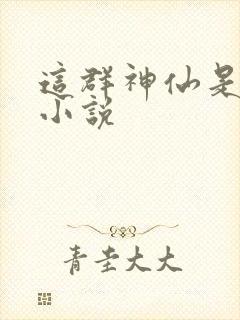 這群神仙是
小說
青圭大大